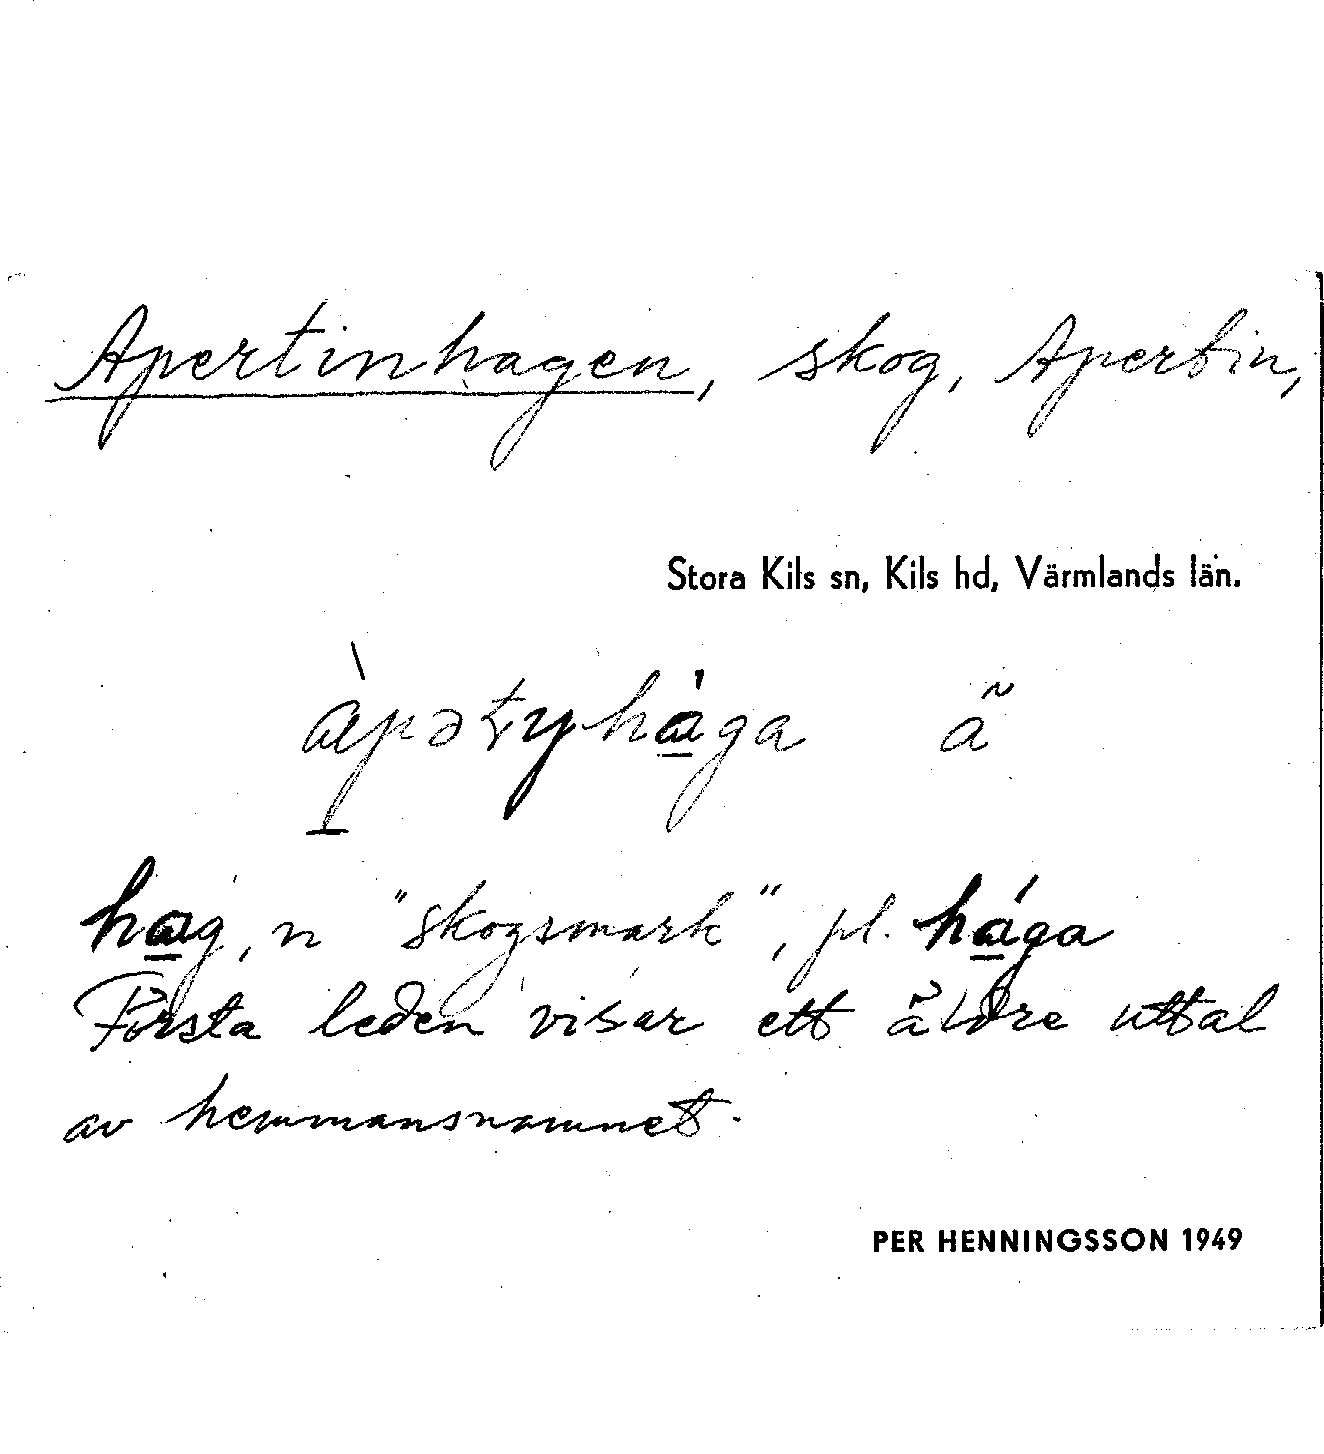 Apertinhagen, skog, Apertin,
Stora Kils sn, Kils hd, Värmlands län.
hag, n "skogsmark", pl. hága
Första leden visar ett äldre uttal
av hemmansnamnet.
PER HENNINGSSON 1949